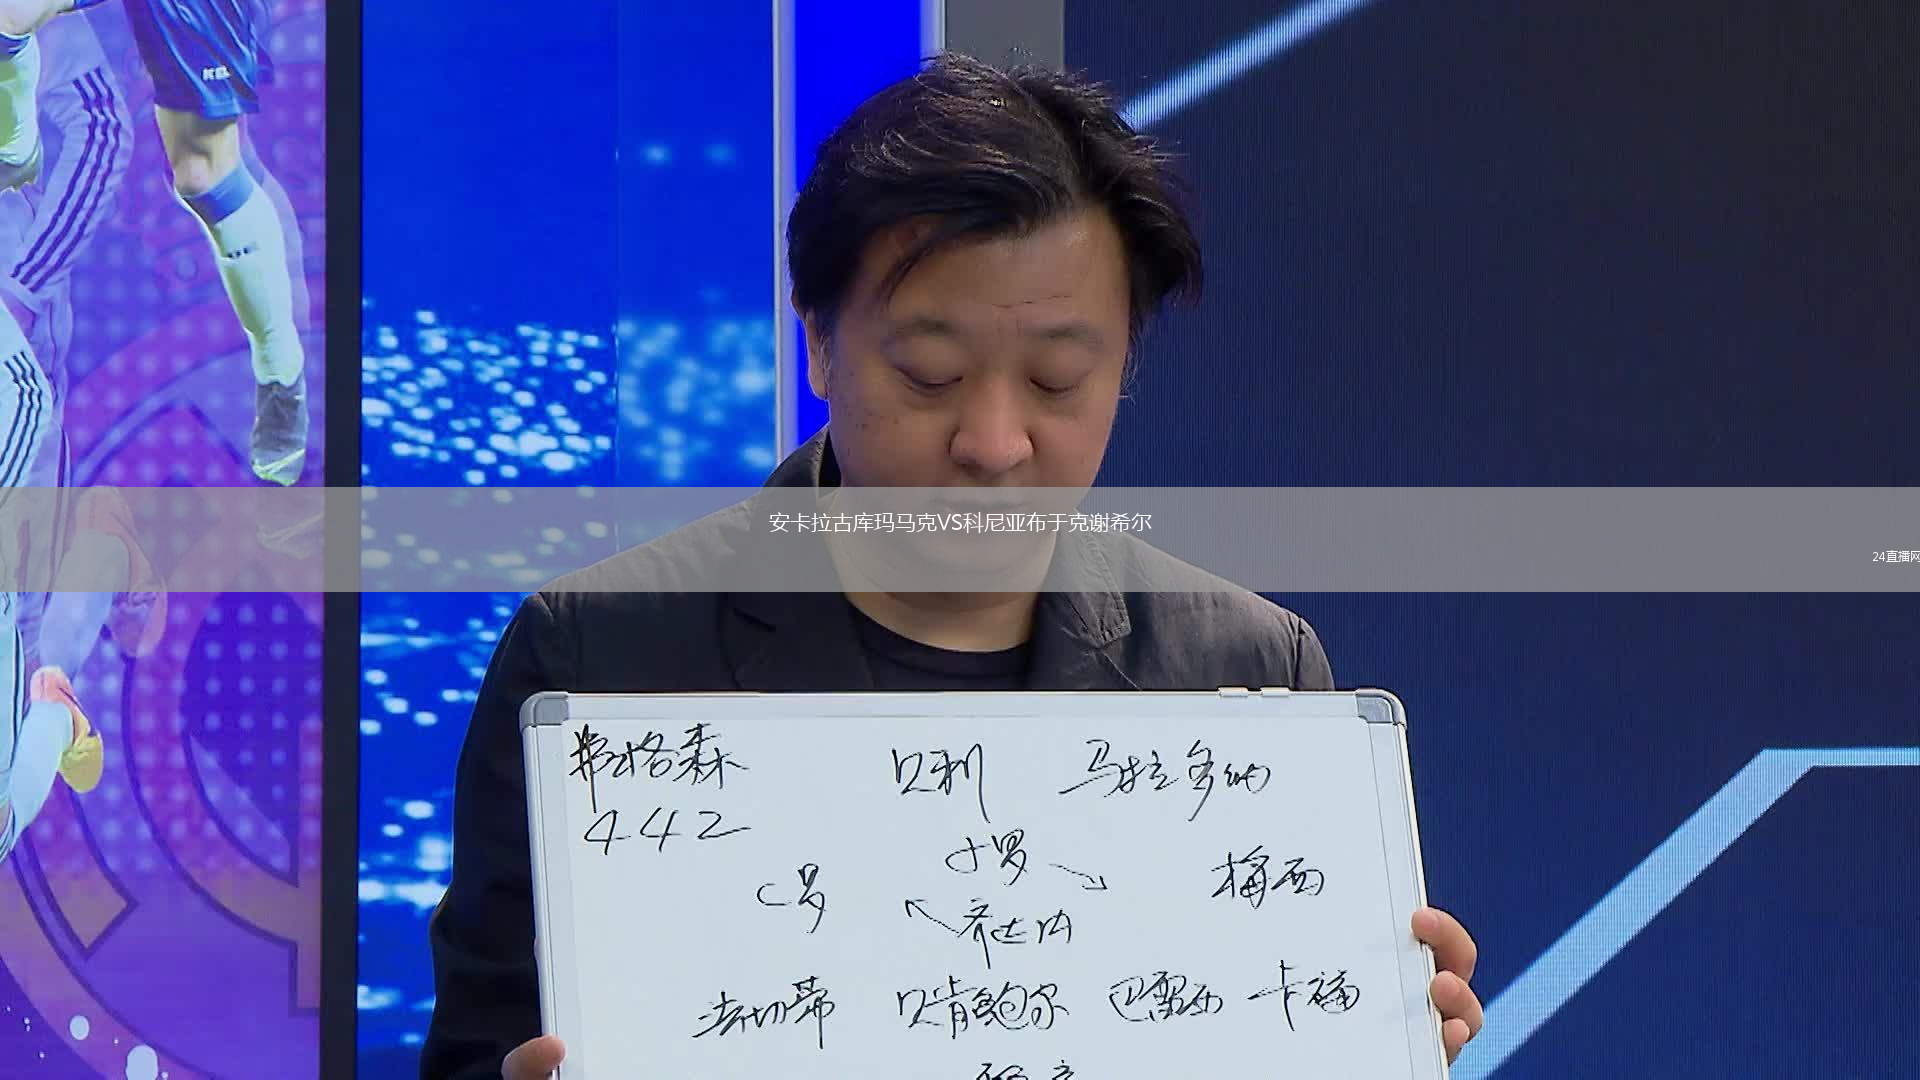 安卡拉古库玛马克VS科尼亚布于克谢希尔
24直播网
弗格森 贝利 马拉多纳
442
小罗
C罗 梅西
齐达内
法切蒂 贝肯鲍尔 巴雷西 卡福